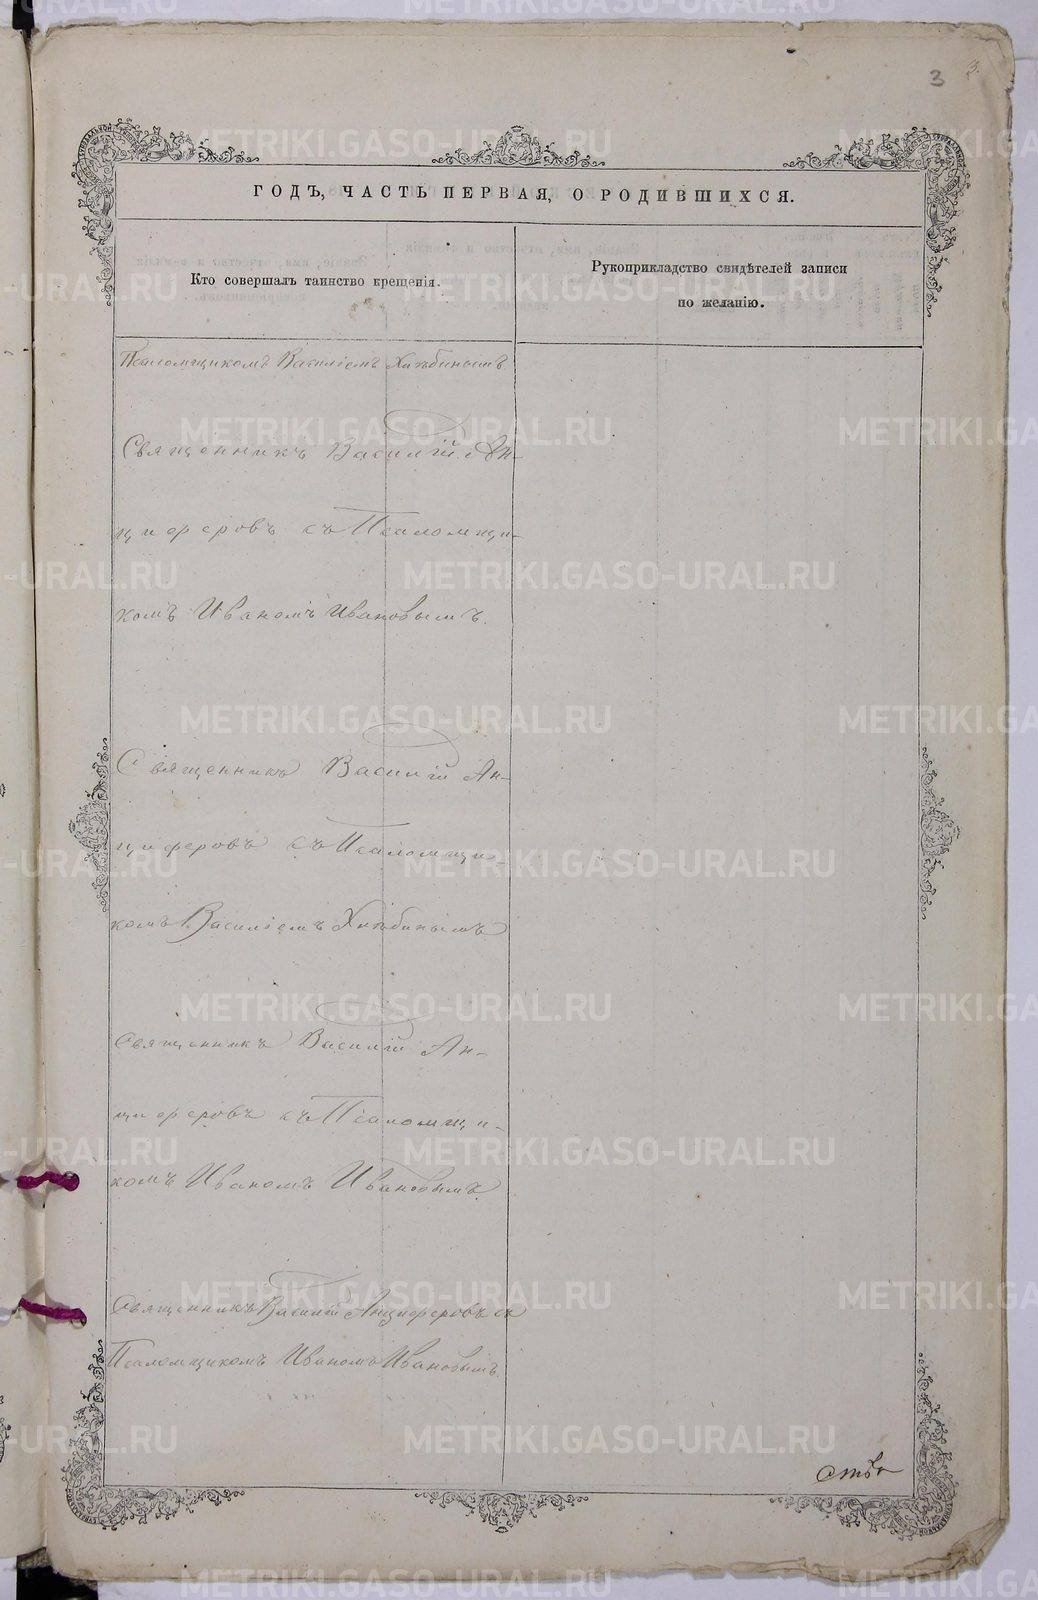 3
3.
ГОДЪ, ЧАСТЬ ПЕРВАЯ, О РОДИВШИХСЯ.
Кто совершалъ таинство крещенія.
Рукоприкладство свидѣтелей записи
по желанію.
Псаломщикомъ Василіемъ Хлѣбинымъ
Священникъ Василій Ан-
циферовъ съ Псаломщи-
комъ Иваномъ Ивановымъ.
Священникъ Василій Ан-
циферовъ съ Псаломщи-
комъ Василіемъ Хлѣбинымъ
Священникъ Василій Ан-
циферовъ съ Псаломщи-
комъ Иваномъ Ивановымъ.
Священникъ Василій Анциферовъ съ
Псаломщикомъ Иваномъ Ивановымъ.
ства
METRIKI.GASO-URAL.RU